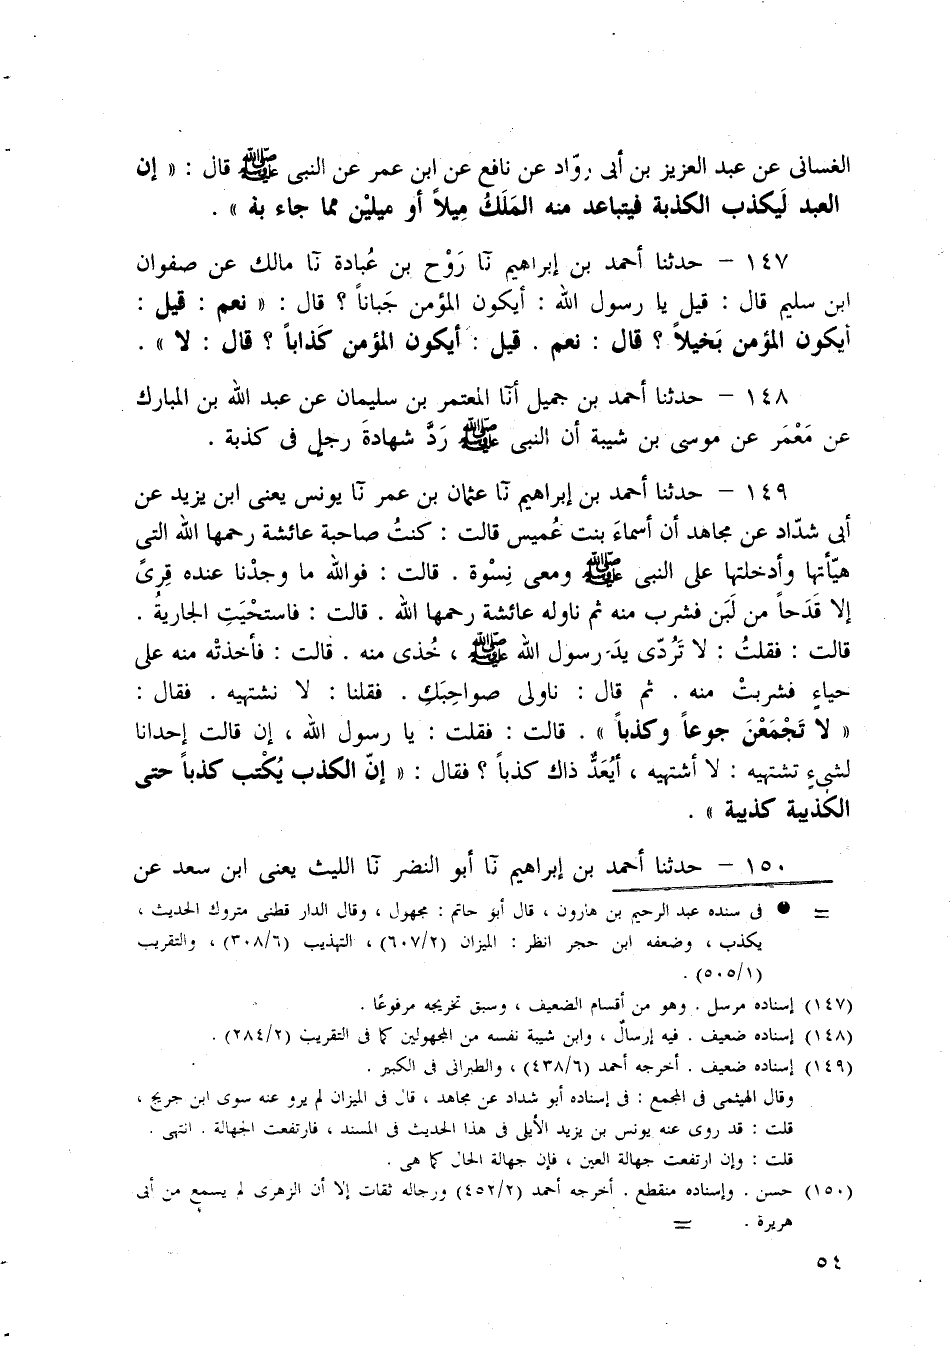 الغسانى عن عبد العزيز بن أبى روّاد عن نافع عن ابن عمر عن النبى ﷺ قال : « إن
العبد لَيكذب الكذبة فيتباعد منه المَلَكُ مِيلاً أو ميليْن مما جاء به » .
١٤٧ – حدثنا أحمد بن إبراهيم نَا رَوْح بن عُبادة نَا مالك عن صفوان
ابن سليم قال : قيل يا رسول الله : أيكون المؤمن جَباناً ؟ قال : « نعم : قيل :
أيكون المؤمن بَخيلاً ؟ قال : نعم . قيل : أيكون المؤمن كَذاباً ؟ قال : لا » .
١٤٨ – حدثنا أحمد بن جميل أنَا المعتمر بن سليمان عن عبد الله بن المبارك
عن مَعْمَر عن موسى بن شيبة أن النبى ﷺ رَدَّ شهادةَ رجلٍ فى كذبة .
١٤٩ – حدثنا أحمد بن إبراهيم نَا عثمان بن عمر نَا يونس يعنى ابن يزيد عن
أبى شدّاد عن مجاهد أن أسماءَ بنت عُميس قالت : كنتُ صاحبة عائشة رحمها الله التى
هيّأتها وأدخلتها على النبى ﷺ ومعى نِسْوة . قالت : فوالله ما وجدْنا عنده قِرىً
إلا قَدَحاً من لَبَن فشرب منه ثم ناوله عائشة رحمها الله . قالت : فاستحْيَتِ الجاريةُ .
قالت : فقلتُ : لا تَرُدّى يدَ رسول الله ﷺ ، خُذى منه . قالت : فأخذتْه منه على
حياءٍ فشربتْ منه . ثم قال : ناولى صواحِبَكِ . فقلنا : لا نشتهيه . فقال :
« لا تَجْمَعْنَ جوعاً وكذباً » . قالت : فقلت : يا رسول الله ، إن قالت إحدانا
لشىءٍ تشتهيه : لا أشتهيه ، أيُعَدُّ ذاك كذباً ؟ فقال : « إنّ الكذب يُكْتب كذباً حتى
الكُذيبة كذيبة » .
١٥٠ – حدثنا أحمد بن إبراهيم نَا أبو النضر نَا الليث يعنى ابن سعد عن
= ● فى سنده عبد الرحيم بن هارون ، قال أبو حاتم : مجهول ، وقال الدار قطنى متروك الحديث ،
يكذب ، وضعفه ابن حجر انظر : الميزان (٦٠٧/٢) ، التهذيب (٣٠٨/٦) ، والتقريب
(٥٠٥/١) .
(١٤٧) إسناده مرسل . وهو من أقسام الضعيف ، وسبق تخريجه مرفوعًا .
(١٤٨) إسناده ضعيف . فيه إرسالٌ ، وابن شيبة نفسه من المجهولين كما فى التقريب (٢٨٤/٢) .
(١٤٩) إسناده ضعيف . أخرجه أحمد (٤٣٨/٦) ، والطبرانى فى الكبير .
وقال الهيثمى فى المجمع : فى إسناده أبو شداد عن مجاهد ، قال فى الميزان لم يرو عنه سوى ابن جريج ،
قلت : قد روى عنه يونس بن يزيد الأيلى فى هذا الحديث فى المسند ، فارتفعت الجهالة . انتهى .
قلت : وإن ارتفعت جهالة العين ، فإن جهالة الحال كما هى .
(١٥٠) حسن . وإسناده منقطع . أخرجه أحمد (٤٥٢/٢) ورجاله ثقات إلا أن الزهرى لم يسمع من أبى
هريرة . =
٥٤